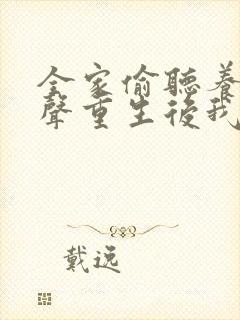 全家偷聽養
聲重生後我
戴逸